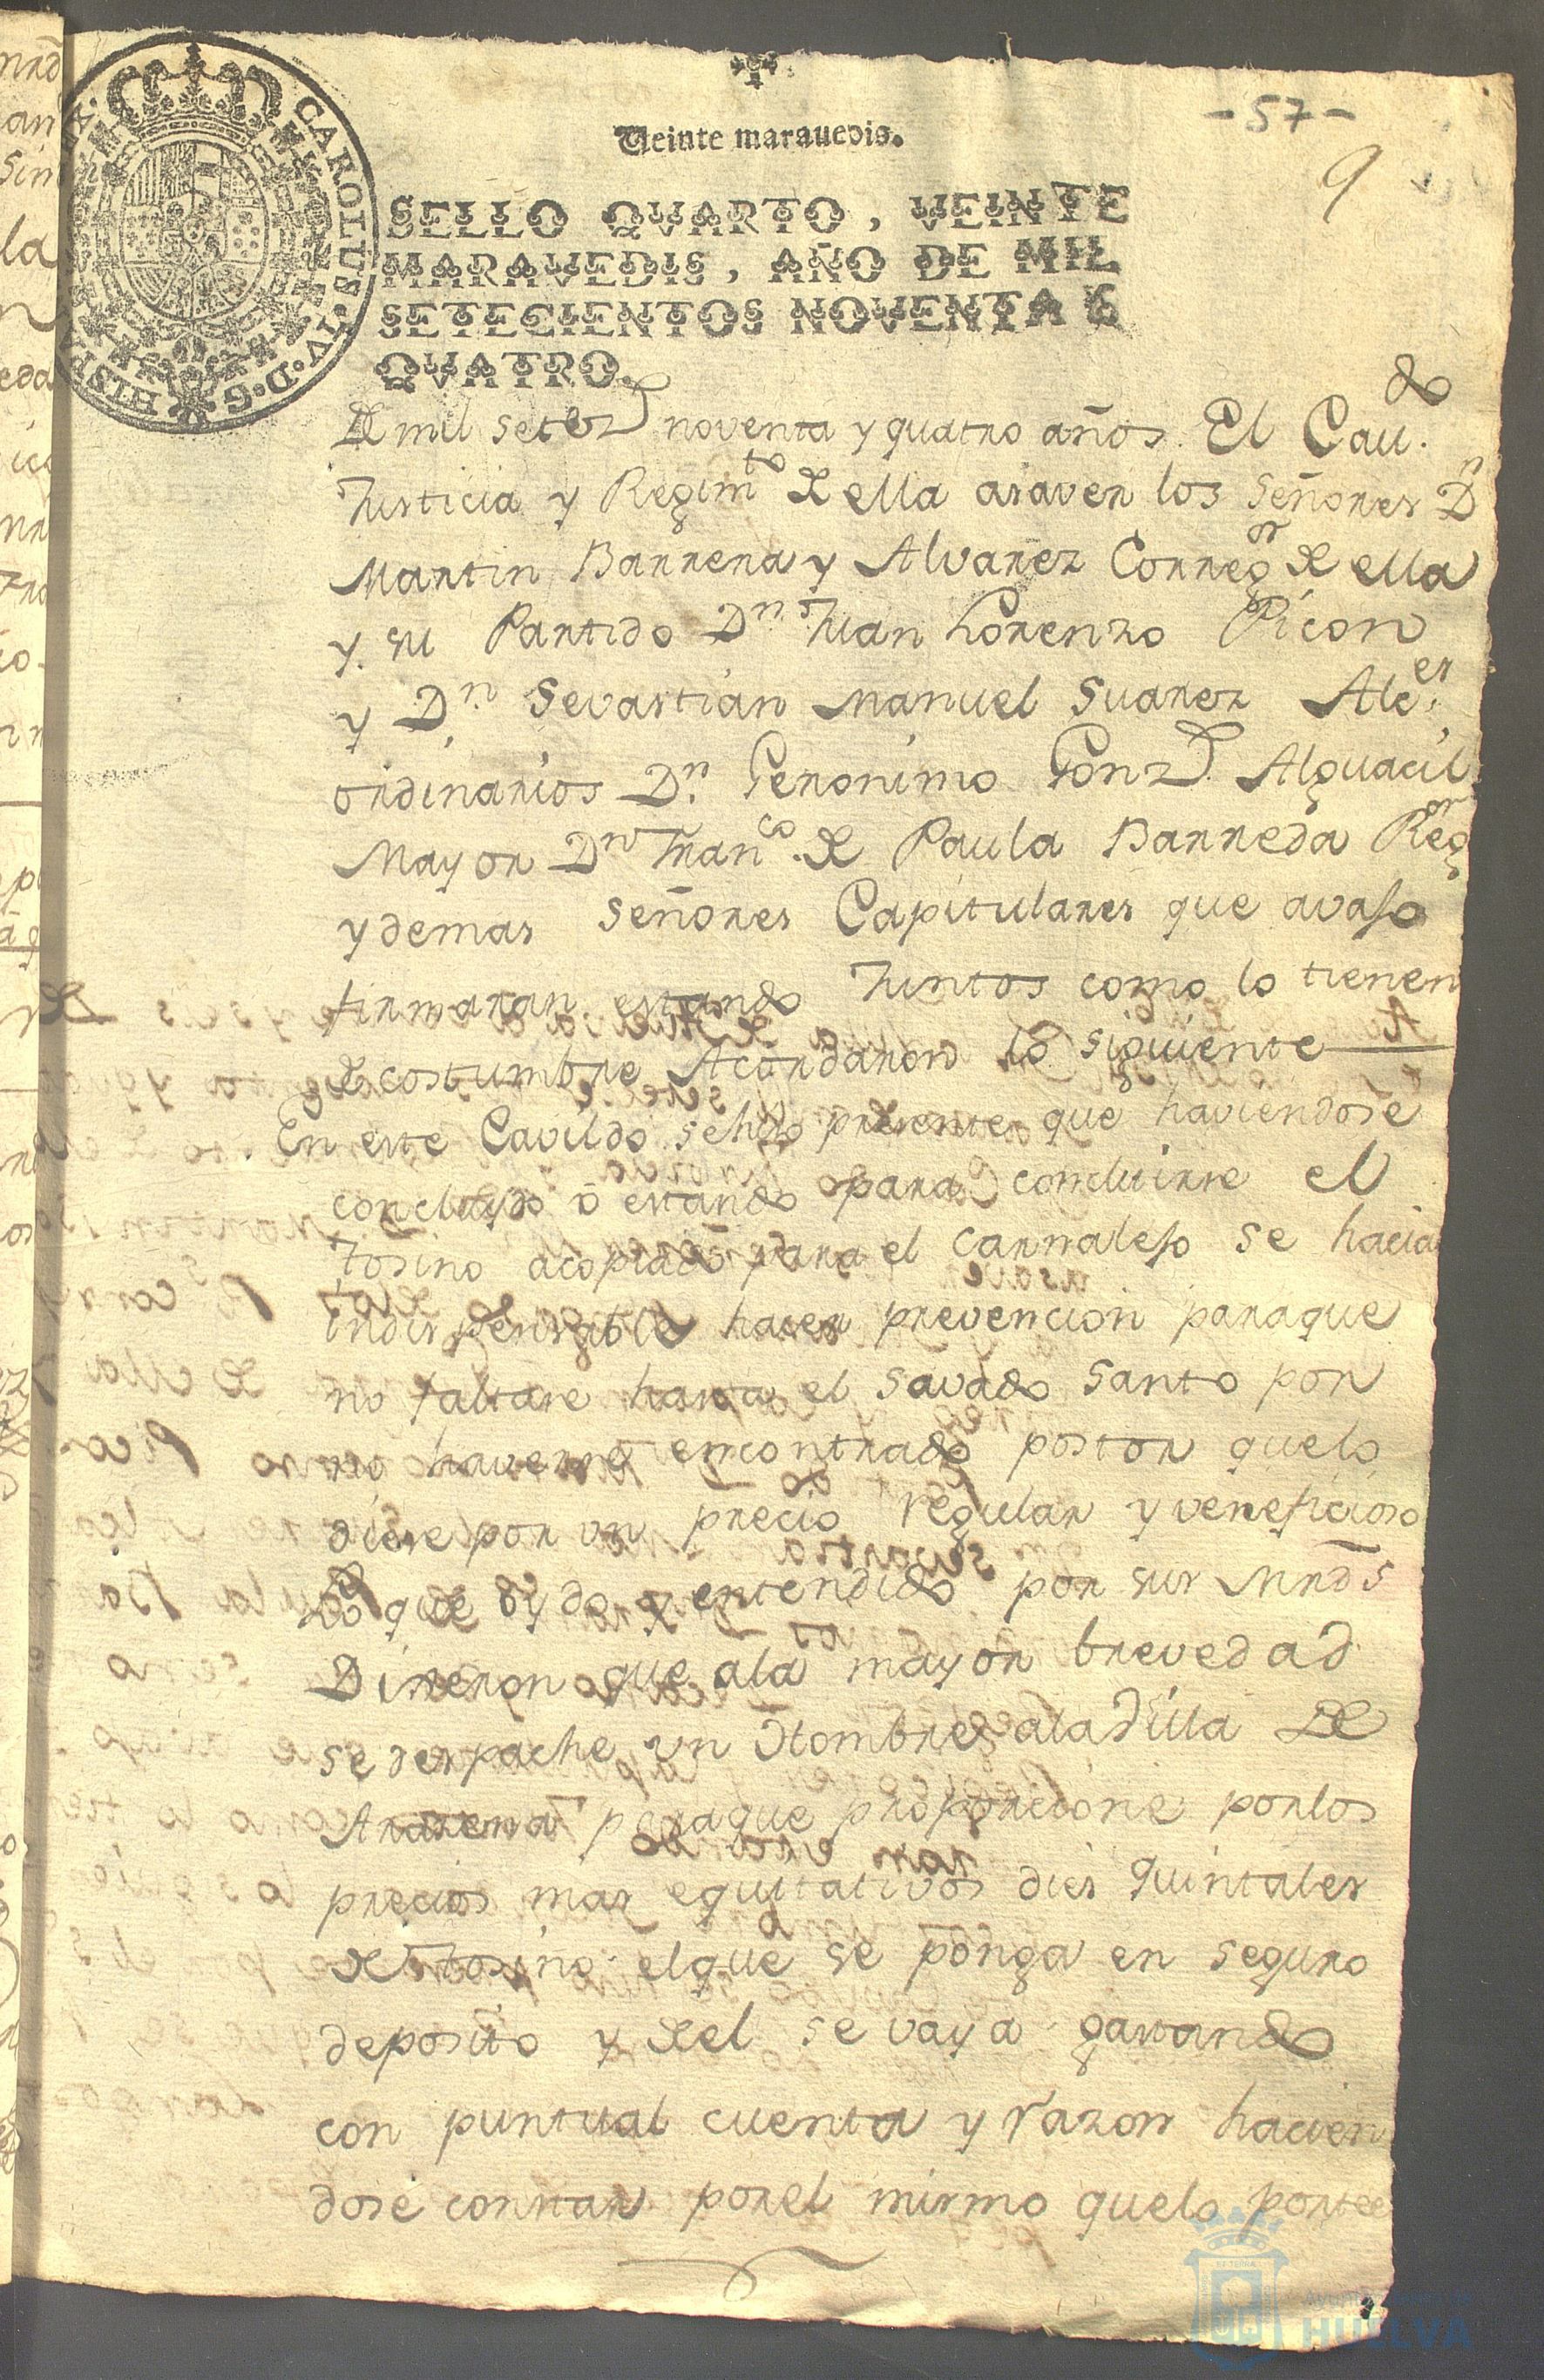 Veinte marauedis.
-57-
9
SELLO QVARTO, VEINTE
MARAVEDIS, AÑO DE MIL
SETECIENTOS NOVENTA Y
QVATRO.
CAROLUS·IV·D·G· HISP
De mil setez.s noventa y quatro años. El Cau.do
Justicia y Regim.to de ella asaver los Señores D.n
Martin Barrera y Alvarez Correg.or de ella
y su Partido D.n Juan Lorenzo Picon
y D.n Sevastian Manuel Suarez Alc.es
ordinarios D.n Geronimo Gonz.s Alguacil
Mayor D.n Fran.co de Paula Barreda Reg.or
y demas Señores Capitulares que avajo
firmaran estando Juntos como lo tienen
de costumbre Acordaron lo siguiente
En este Cavildo se hizo presente que haviendose
concluydo o estando para concluirse el
tosino acopiado para el carnalejo se hacia
indispensable hacer prevencion paraque
no faltase hasta el Savado Santo por
no haverse encontrado postor quelo
diese por un precio regular y veneficioso
Lo que oydo y entendido por sus Mrds
Dixeron que ala mayor brevedad
se despache un Hombre ala Villa de
Arasena paraque proporcione porlos
precios mas equitativos dies quintales
de tosino elque se ponga en seguro
deposito y del se vaya gastando
con puntual cuenta y razon hacien
dose constar porel mismo quelo portee
HUELVA